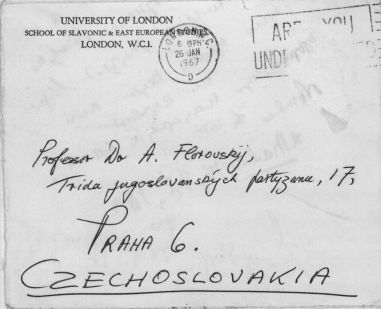 UNIVERSITY OF LONDON
SCHOOL OF SLAVONIC & EAST EUROPEAN STUDIES
LONDON, W.C.1.
LONDON W.C.
6 15PM
26 JAN
1967
D
ARE YOU
UND
Professor Dr A. Florovskij,
Trida jugoslovanských partyzanu, 17,
PRAHA 6.
CZECHOSLOVAKIA